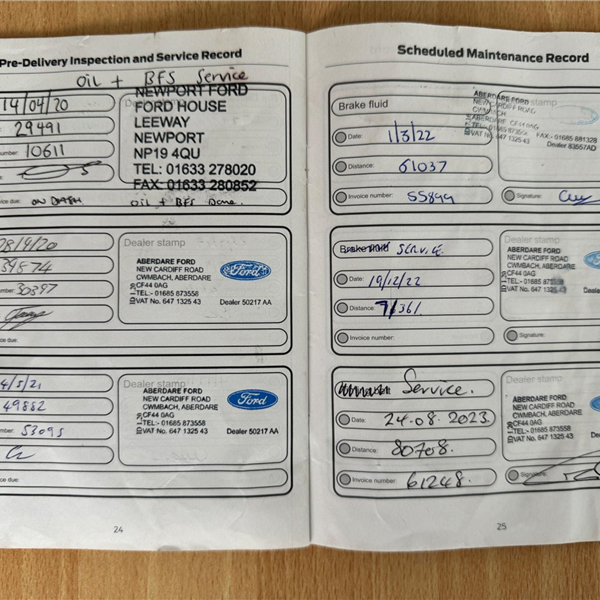 Pre-Delivery Inspection and Service Record
Oil + BFS Service
14/04/20
29491
10611
ON DASH
Oil + BFS Done.
NEWPORT FORD
FORD HOUSE
LEEWAY
NEWPORT
NP19 4QU
TEL: 01633 278020
FAX: 01633 280852
28/9/20
39874
30397
Dealer stamp
ABERDARE FORD
NEW CARDIFF ROAD
CWMBACH, ABERDARE
CF44 0AG
TEL:- 01685 873558
VAT No. 647 1325 43
Dealer 50217 AA
Ford
4/5/21
49852
53095
Dealer stamp
ABERDARE FORD
NEW CARDIFF ROAD
CWMBACH, ABERDARE
CF44 0AG
TEL:- 01685 873558
VAT No. 647 1325 43
Dealer 50217 AA
Ford
24
Scheduled Maintenance Record
Brake fluid
Date: 1/3/22
Distance: 61037
Invoice number: 55899
Signature:
stamp
ABERDARE FORD
NEW CARDIFF ROAD
CF44 0AG
FAX:- 01685 881328
VAT No. 647 1325 43
Dealer 83557AD
Brake fluid SERVICE
Date: 19/12/22
Distance: 71361
Invoice number:
Signature:
Dealer stamp
ABERDARE FORD
NEW CARDIFF ROAD
CWMBACH, ABERDARE
CF44 0AG
VAT No. 647 1325 43
Service.
Date: 24.08.2023.
Distance: 80708.
Invoice number: 61248.
Signature:
Dealer stamp
ABERDARE FORD
NEW CARDIFF ROAD
CWMBACH, ABERDARE
CF44 0AG
TEL:- 01685 873558
VAT No. 647 1325 43
25